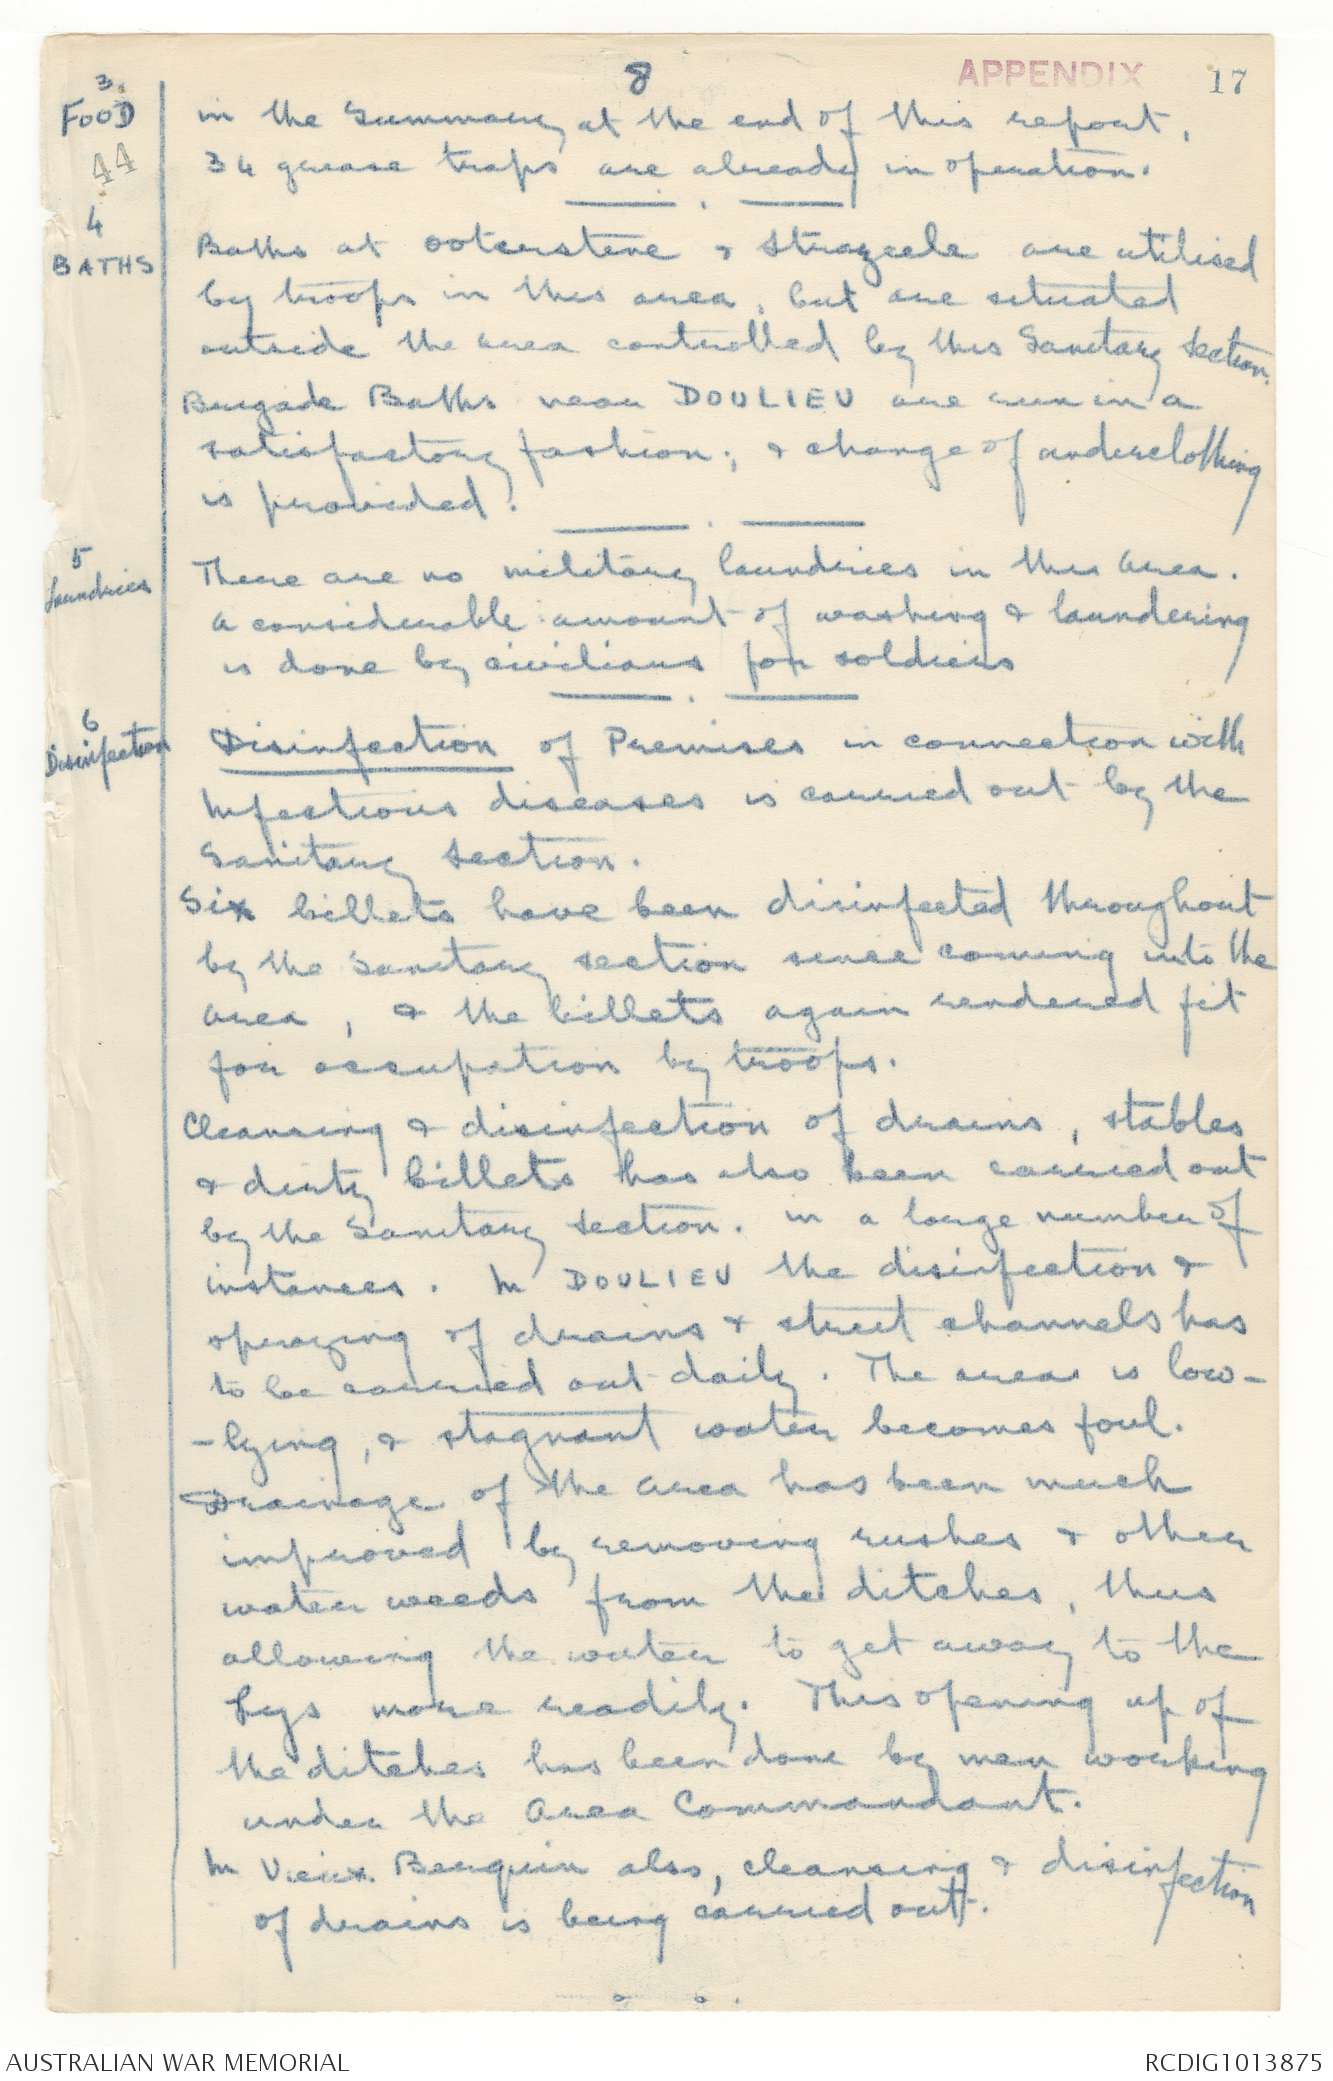 8
APPENDIX 17
3.
FOOD
44
in the Summary at the end of this report,
34 grease traps are already in operation.
4
BATHS
Baths at Ooterstene & Strazeele are utilised
by troops in this area, but are situated
outside the area controlled by this Sanitary Section.
Brigade Baths near DOULIEU are run in a
satisfactory fashion; & change of underclothing
is provided.
5
Laundries
There are no military laundries in this area.
A considerable amount of washing & laundering
is done by civilians for soldiers
6
Disinfection
Disinfection of Premises in connection with
Infectious diseases is carried out by the
Sanitary Section.
Six billets have been disinfected throughout
by the Sanitary section since coming into the
area, & the billets again rendered fit
for occupation by troops.
Cleansing & disinfection of drains, stables
& dirty billets has also been carried out
by the Sanitary Section. in a large number of
instances. In DOULIEU the disinfection &
spraying of drains & street channels has
to be carried out daily. The area is low-
-lying, & stagnant water becomes foul.
Drainage of the area has been much
improved by removing rushes & other
water weeds from the ditches, thus
allowing the water to get away to the
Lys more readily. This opening up of
the ditches has been done by men working
under the Area Commandant.
In Vieux Berquin also, cleansing & disinfection
of drains is being carried out.
AUSTRALIAN WAR MEMORIAL
RCDIG1013875